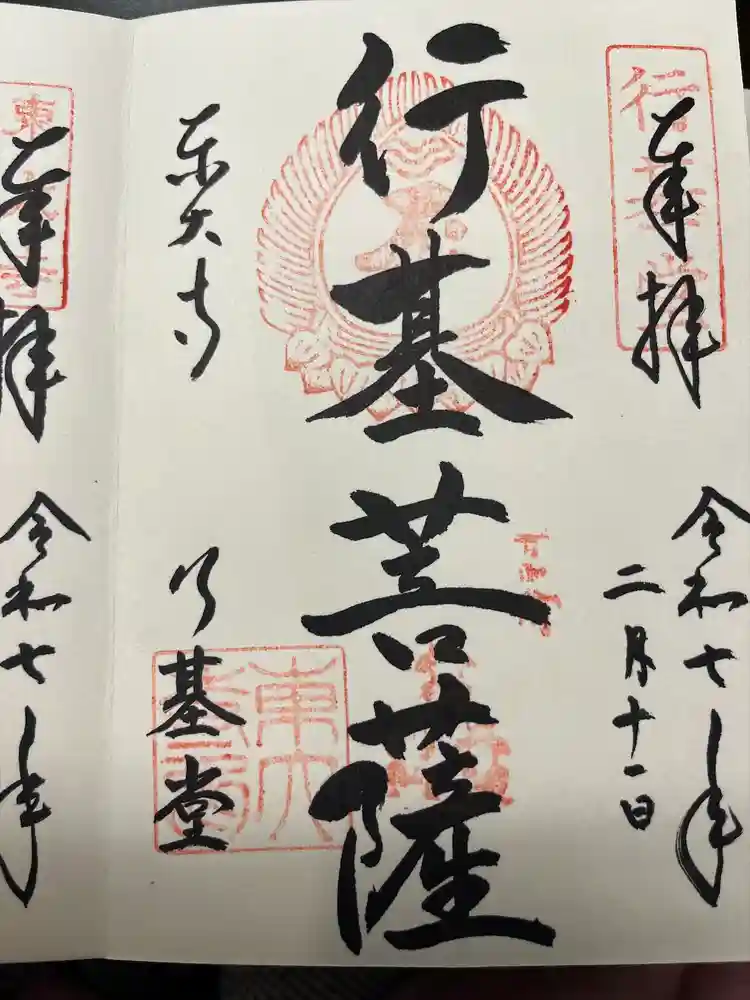 奉拝
令和七年
二月十一日
行基菩薩
東大寺
行基堂
行基堂
東大
奉拝
令和七年